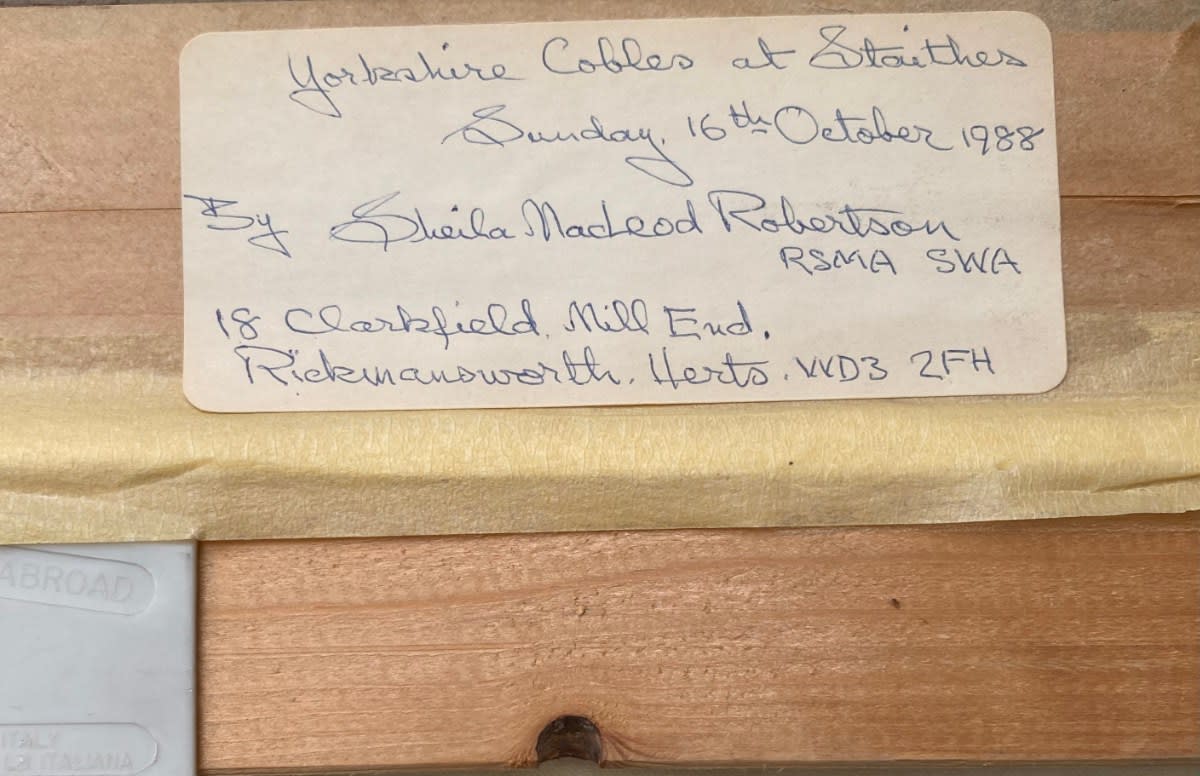 Yorkshire Cobles at Staithes
Sunday, 16th October 1988
By Sheila MacLeod Robertson
RSMA SWA
18 Clarkfield, Mill End.
Rickmansworth. Herts. WD3 2FH
ABROAD
ITALY
ITALIANA